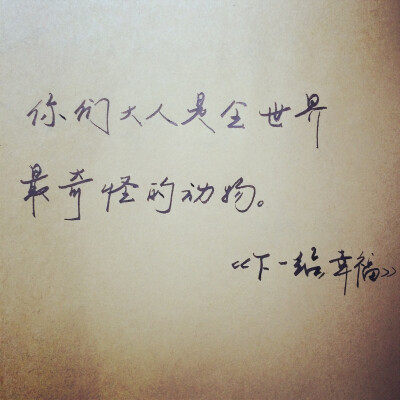 你们大人是全世界
最奇怪的动物。
《下一站幸福》